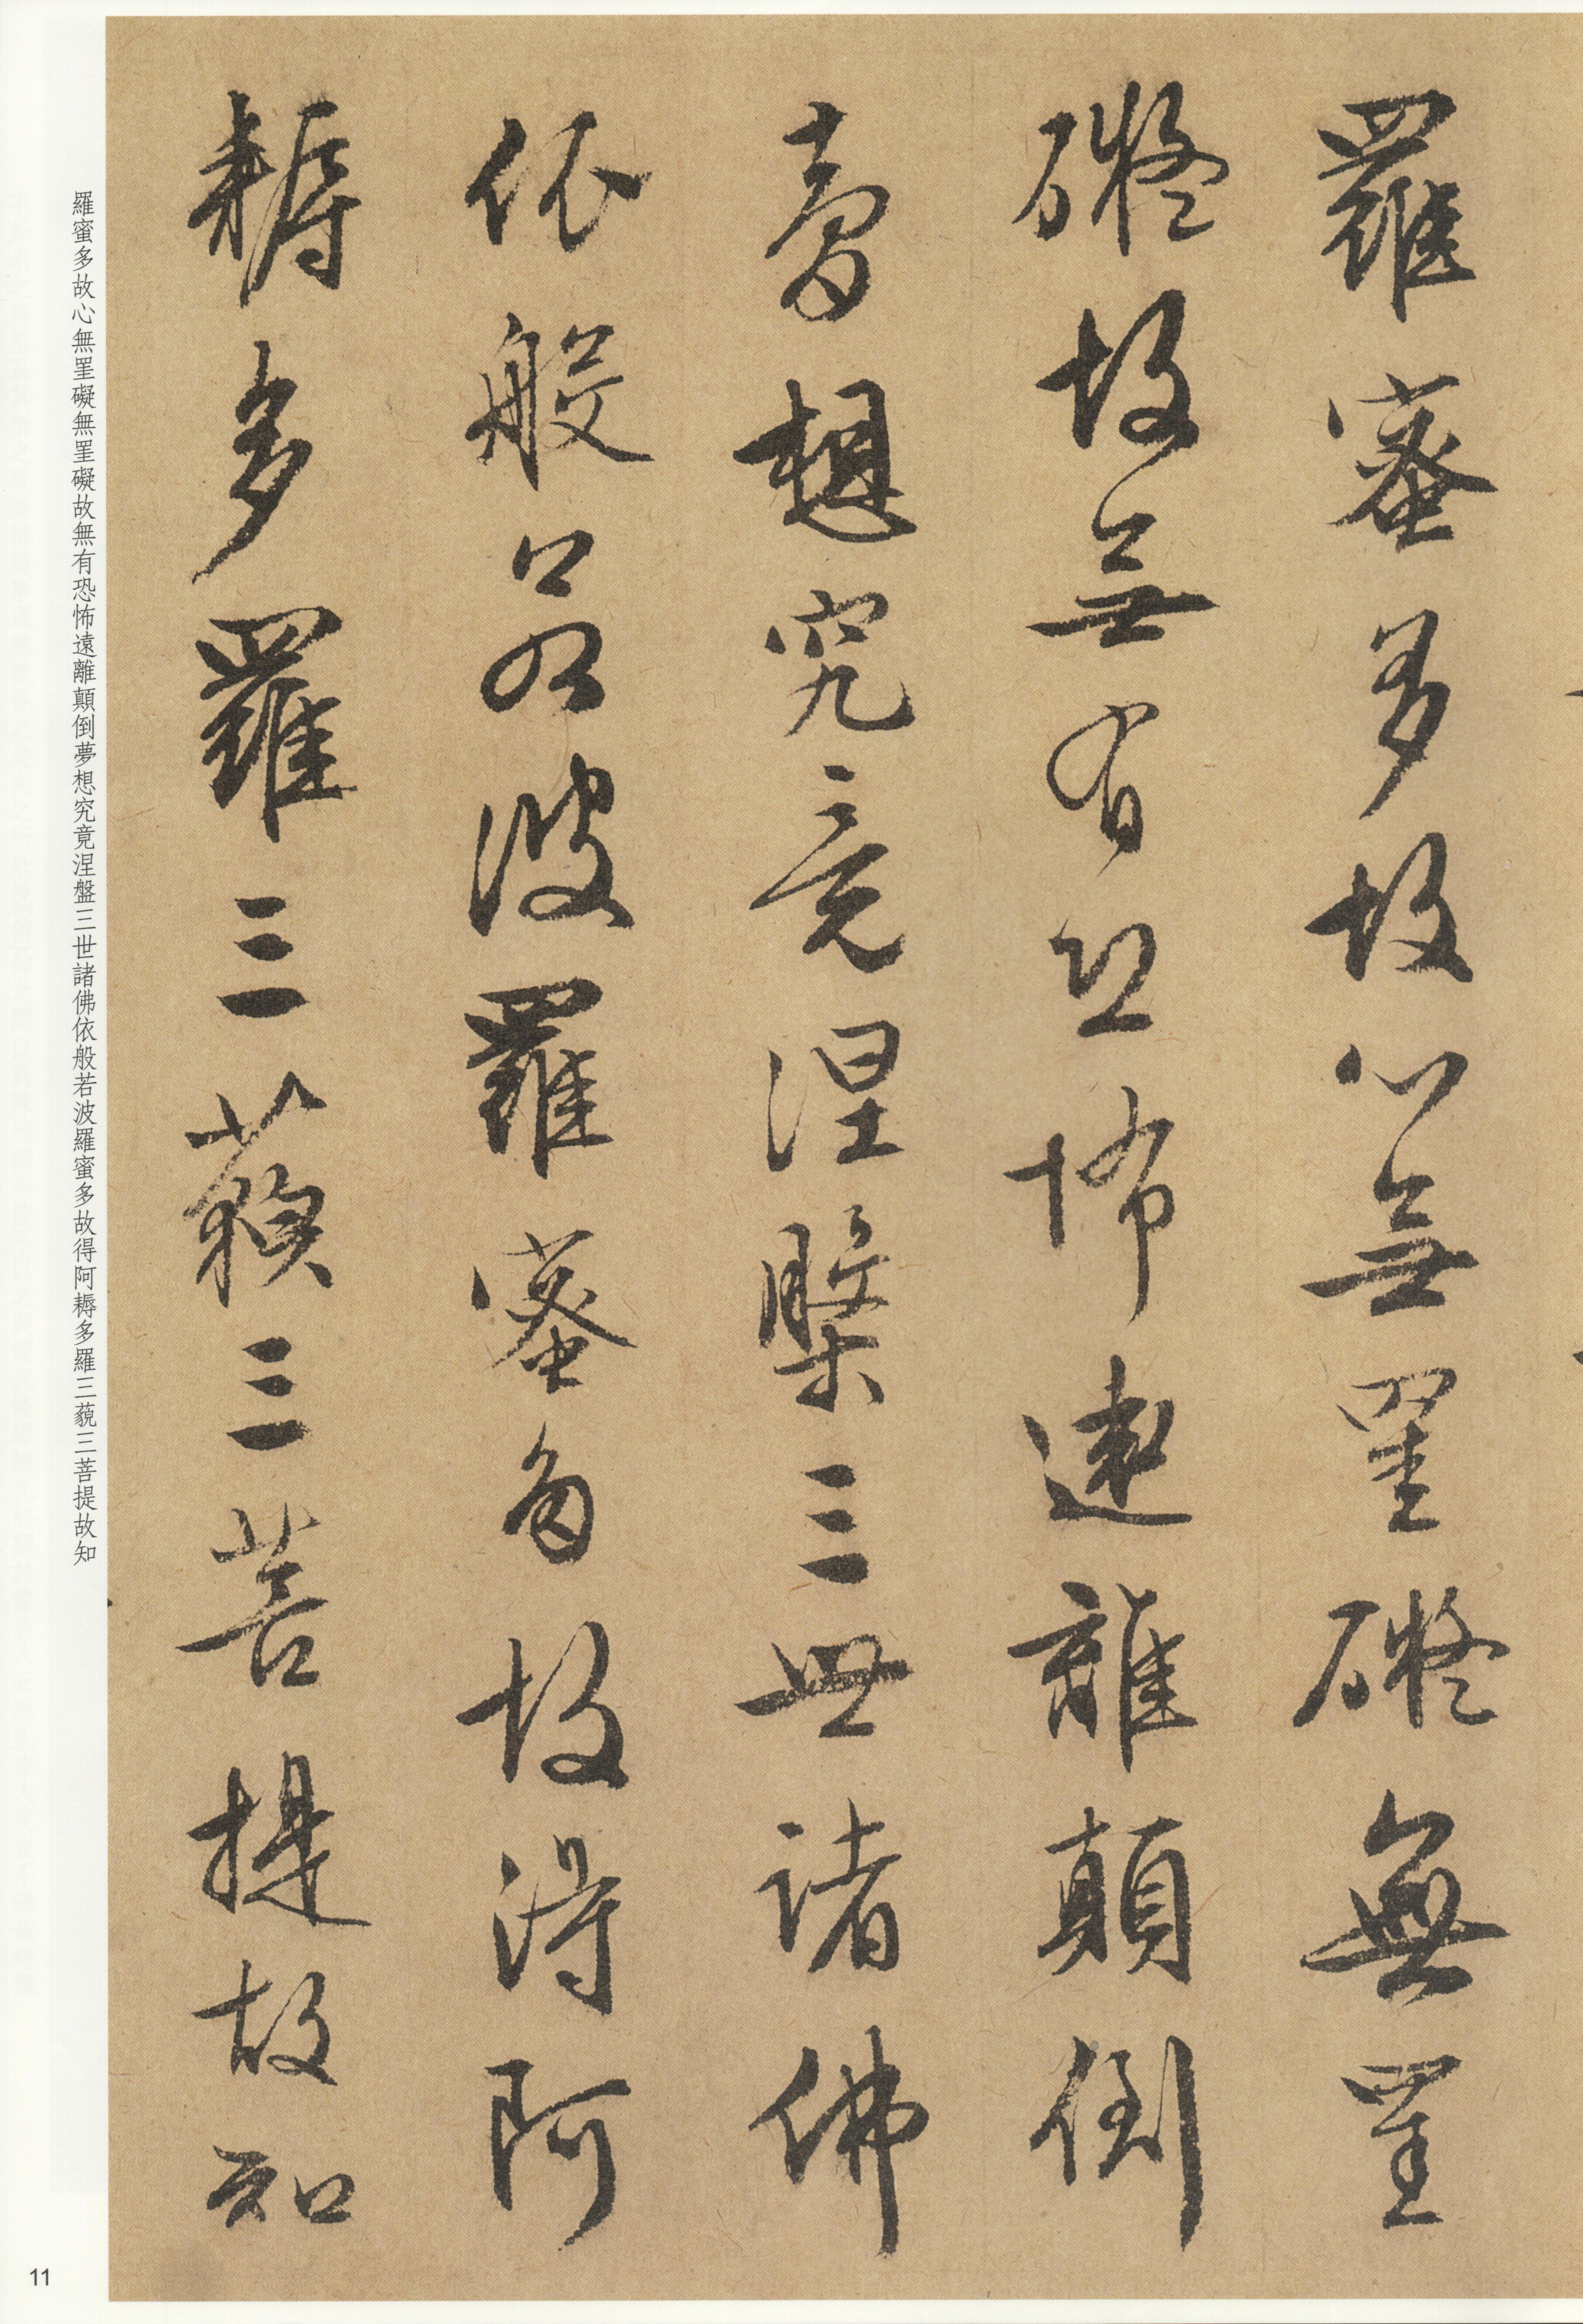 羅蜜多故心無罣礙無罣
礙故無有恐怖遠離顛倒
夢想究竟涅槃三世諸佛
依般若波羅蜜多故得阿
耨多羅三藐三菩提故知
羅蜜多故心無罣礙無罣礙故無有恐怖遠離顛倒夢想究竟涅盤三世諸佛依般若波羅蜜多故得阿耨多羅三藐三菩提故知
11